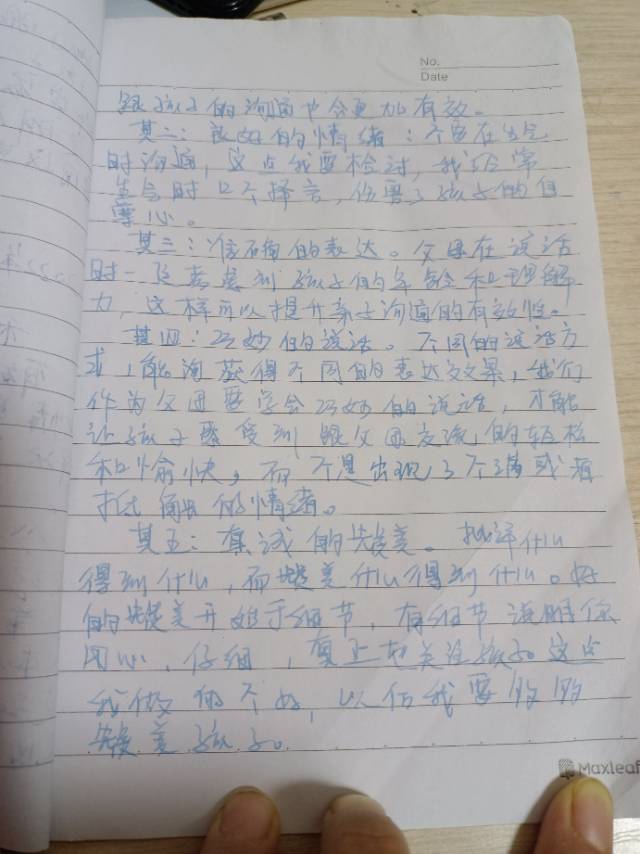 No.
Date
跟孩子的沟通也会更加有效。
其二：良好的情绪：不宜在生气
时沟通，这点我要检讨，我经常
生气时口不择言，伤害了孩子的自
尊心。
其三：准确的表达。父母在说话
时一定要考虑到孩子的年龄和理解
力，这样可以提升亲子沟通的有效性。
其四：巧妙的说话。不同的说话方
式，能沟获得不同的表达效果，我们
作为父母要学会巧妙的说话，才能
让孩子感受到跟父母交流的轻松
和愉快，而不是出现了不满或者
抵触的情绪。
其五：真诚的赞美。批评什么
得到什么，而赞美什么得到什么。好
的赞美开始于细节，有细节说明你
用心，仔细，真正在关注孩子。这点
我做的不好，以后我要多多
赞美孩子。
Maxleaf